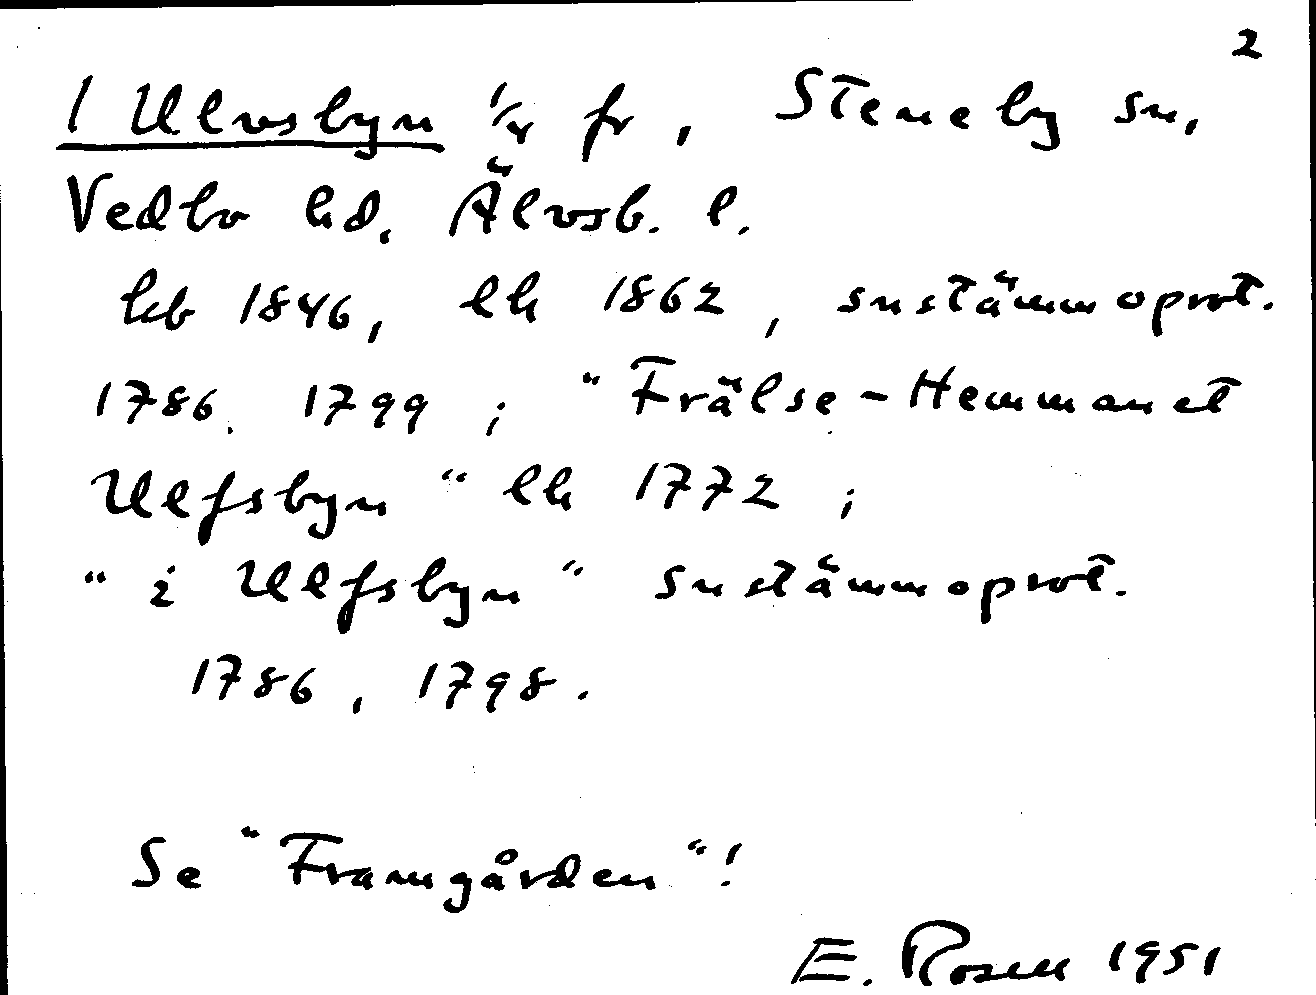 2
1 Ulvsbyn 1/4 fr, Steneby sn,
Vedbo hd. Älvsb. l.
hb 1846, lh 1862, snstämmoprot.
1786. 1799; "Frälse-Hemmanet
Ulfsbyn" lh 1772;
"i Ulfsbyn" snstämmoprot.
1786, 1798.
Se "Framgården"!
E. Rosell 1951